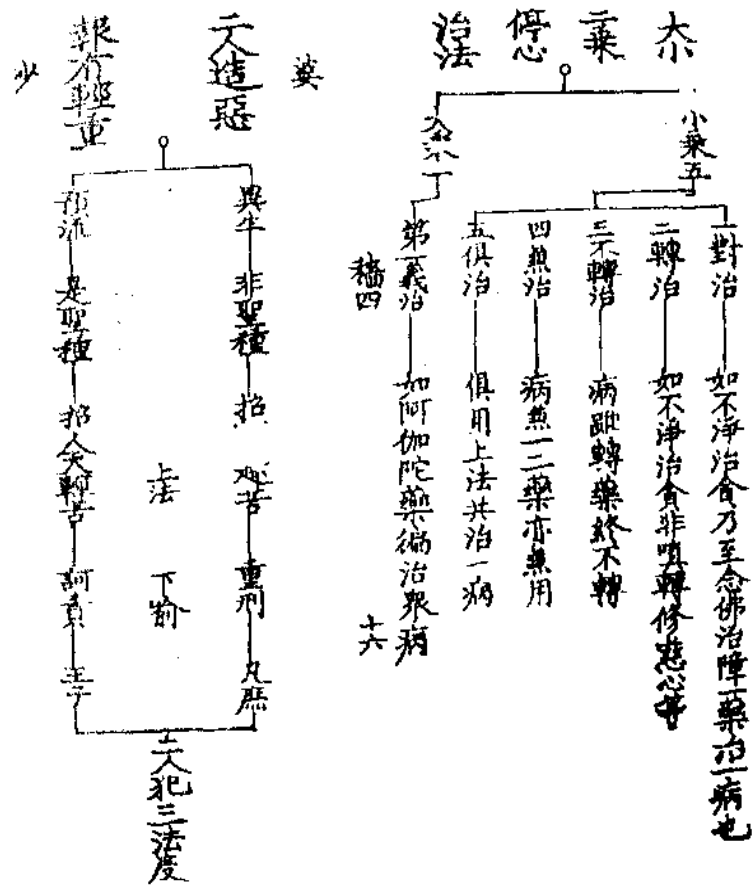 大小
二乘
停心
治法
小乘五
大乘一
一對治 如不淨治貪乃至念佛治障一藥治一病也
二轉治 如不淨治貪非嗔轉修慈心等
三不轉治 病雖轉藥終不轉
四無治 病無一二藥亦無用
五俱治 俱用上法共治一病
第一義治 如阿伽陀藥徧治眾病
籤四
十六
婆
二人造惡
報有輕重
少
異生 非聖種 招 極苦 重刑 凡庶
上法 下喻
預流 是聖種 招人天輕苦 訶責 王子
二人犯三法度